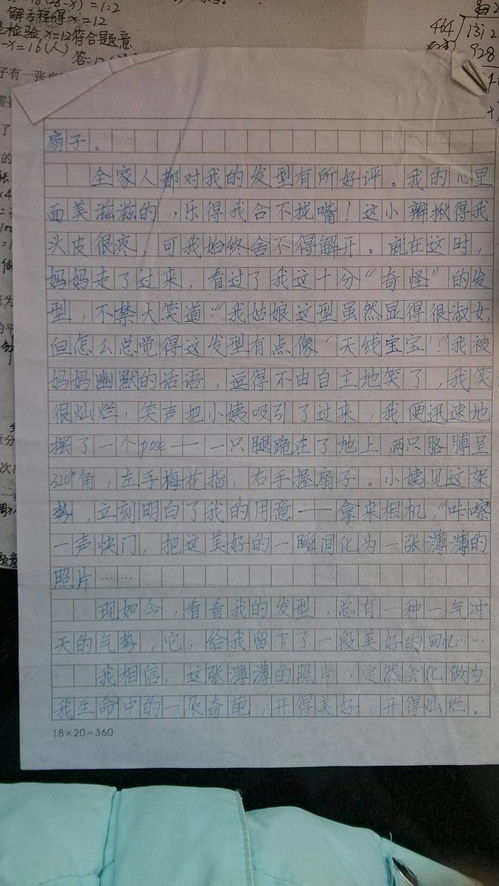 解方程得x=12
检验 x=12符合题意
-x=16(人)
扇子。
全家人都对我的发型有所好评。我的心里
面美滋滋的,乐得我合不拢嘴!这小辫揪得我
头皮很疼,可我始终舍不得解开。就在这时,
妈妈走了过来,看过了我这十分“奇怪”的发
型,不禁大笑道:“我姑娘这型虽然显得很淑女,
但怎么总觉得这发型有点像“天线宝宝!”我被
妈妈幽默的话语,逗得不由自主地笑了,我笑
很灿烂,笑声把小姨吸引了过来,我便迅速地
摆了一个pose——一只腿跪在了地上,两只胳膊呈
320°角,左手梅花指,右手握扇子。小姨见这架
势,立刻明白了我的用意——拿来相机,“咔嚓”
一声快门,把这美好的一瞬间化为一张薄薄的
照片……
现如今,看看我的发型,总有一种一气冲
天的气势,它,给我留下了一段美好的回忆……
我相信,这张薄薄的照片,定然会化做为
我生命中的一朵奇葩,开得美好,开得灿烂。
18×20=360